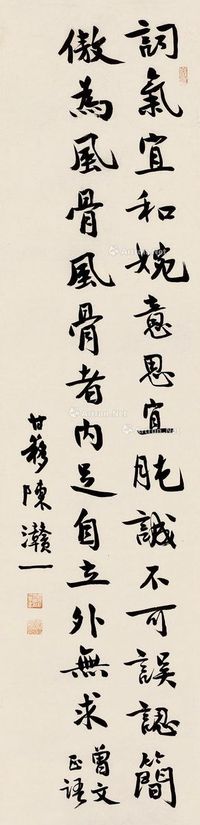 詞氣宜和婉意思宜肫誠不可誤認簡
傲為風骨風骨者內足自立外無求 曾文
正語
甘簃陳灨一